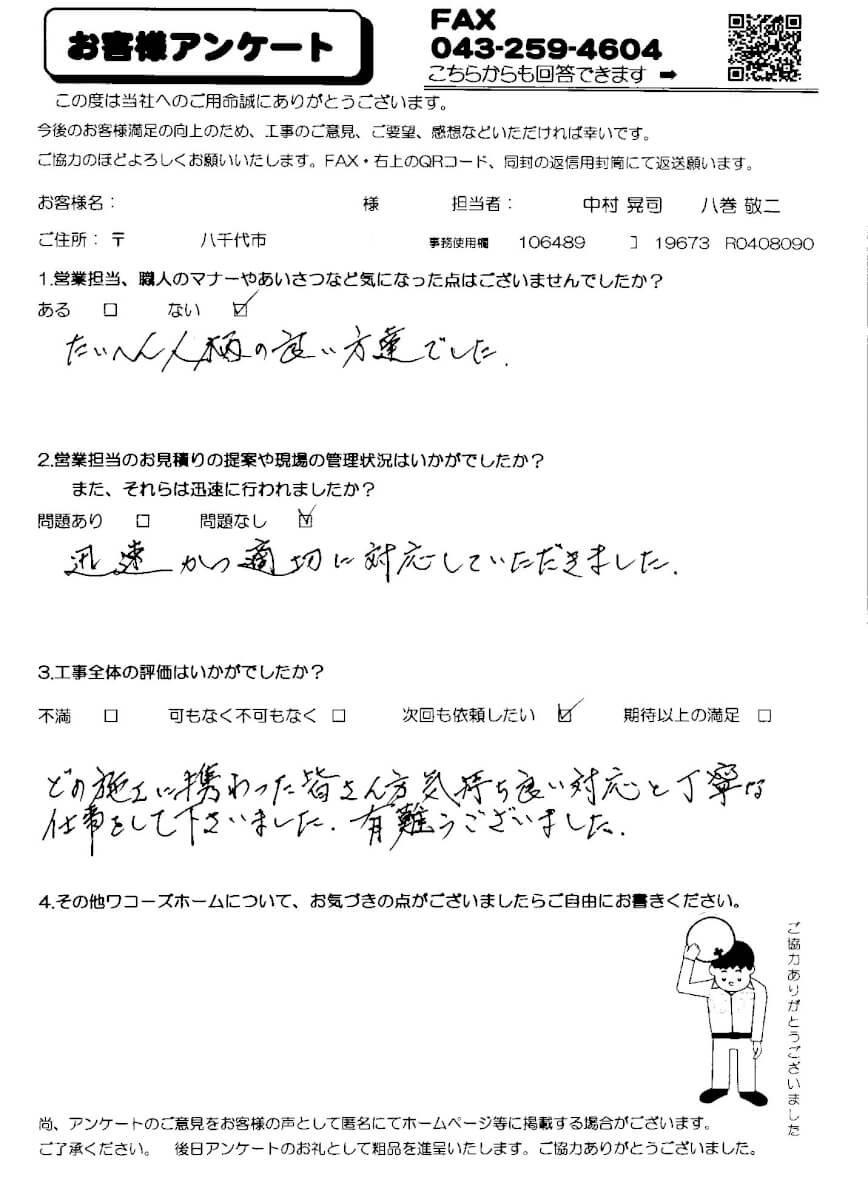 お客様アンケート
FAX
043-259-4604
こちらからも回答できます ➡
この度は当社へのご用命誠にありがとうございます。
今後のお客様満足の向上のため、工事のご意見、ご要望、感想などいただければ幸いです。
ご協力のほどよろしくお願いいたします。FAX・右上のQRコード、同封の返信用封筒にて返送願います。
お客様名： 様 担当者： 中村 晃司 八巻 敬二
ご住所：〒 八千代市 事務使用欄 106489 コ 19673 R0408090
1.営業担当、職人のマナーやあいさつなど気になった点はございませんでしたか？
ある □ ない ☑
たいへん人柄の良い方達でした.
2.営業担当のお見積りの提案や現場の管理状況はいかがでしたか？
また、それらは迅速に行われましたか？
問題あり □ 問題なし ☑
迅速かつ適切に対応していただきました.
3.工事全体の評価はいかがでしたか？
不満 □ 可もなく不可もなく □ 次回も依頼したい ☑ 期待以上の満足 □
どの施工に携わった皆さん方気持ち良い対応と丁寧な
仕事をして下さいました. 有難うございました.
4.その他ワコーズホームについて、お気づきの点がございましたらご自由にお書きください。
ご協力ありがとうございました
尚、アンケートのご意見をお客様の声として匿名にてホームページ等に掲載する場合がございます。
ご了承ください。 後日アンケートのお礼として粗品を進呈いたします。ご協力ありがとうございました。